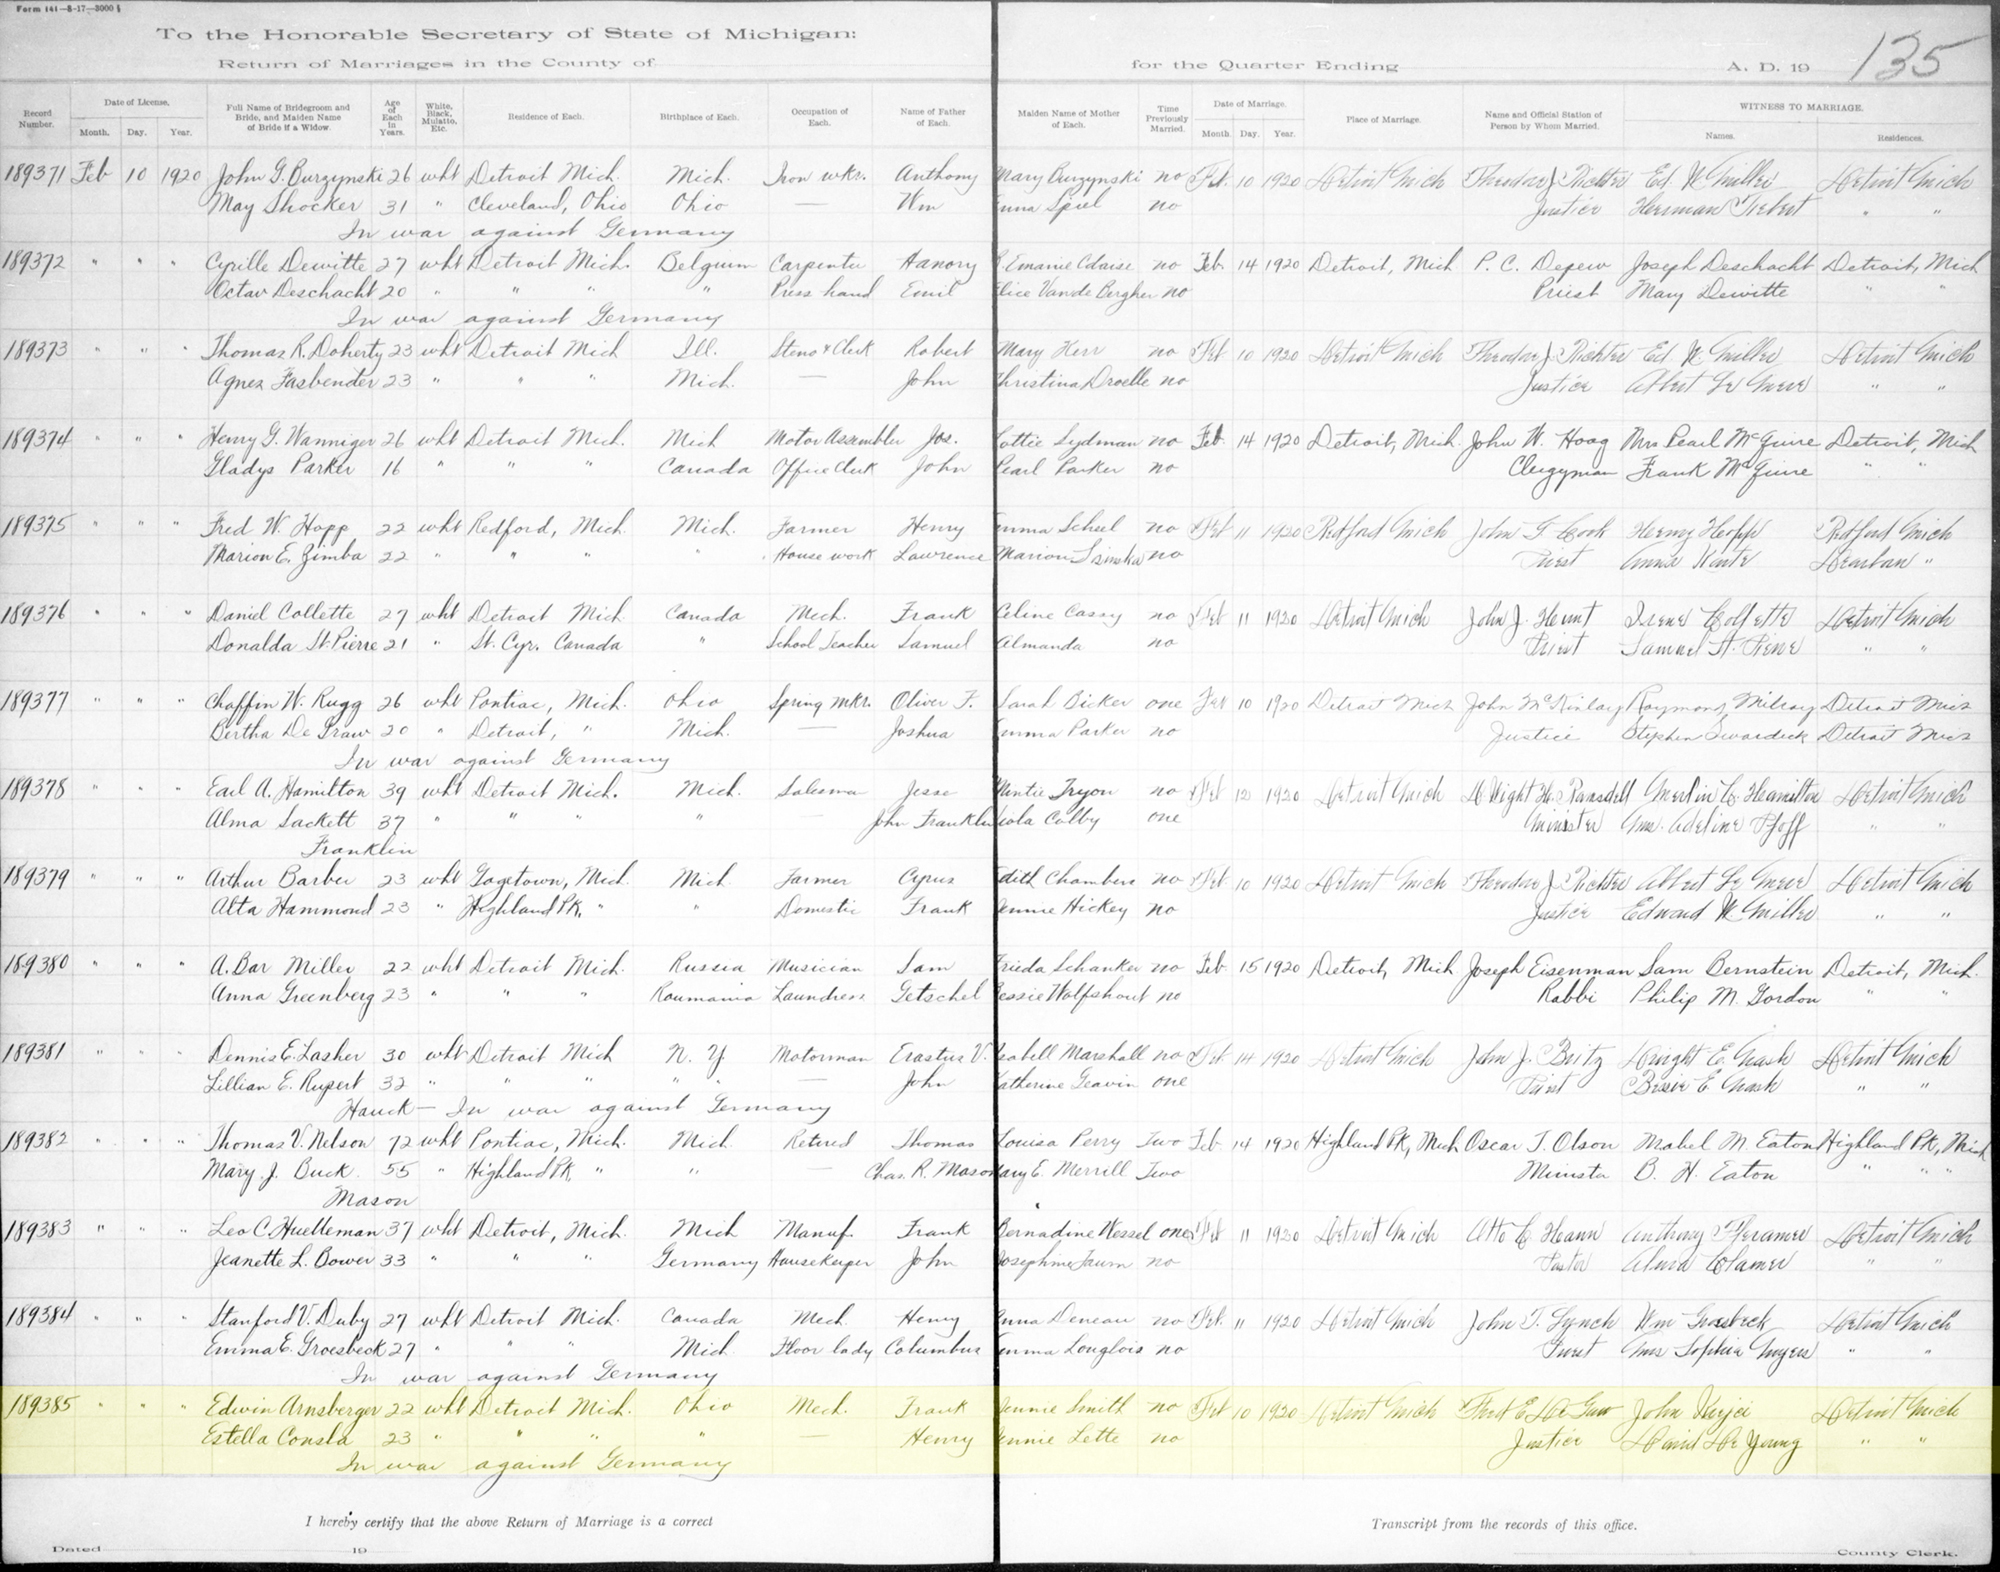 Form 141-8-17-3000
135
To the Honorable Secretary of State of Michigan:
Return of Marriages in the County of
for the Quarter Ending
A. D. 19
Record Number.
Date of License.
Month. Day. Year.
Full Name of Bridegroom and Bride, and Maiden Name of Bride if a Widow.
Age of Each in Years.
White, Black, Mulatto, Etc.
Residence of Each.
Birthplace of Each.
Occupation of Each.
Name of Father of Each.
Maiden Name of Mother of Each.
Time Previously Married.
Date of Marriage.
Month. Day. Year.
Place of Marriage.
Name and Official Station of Person by Whom Married.
WITNESS TO MARRIAGE.
Names. Residences.
189371 Feb 10 1920 John G. Burzynski 26 wht Detroit Mich. Mich. Iron wkr. Anthony Mary Burzynski no Feb. 10 1920 Detroit Mich Theodore J. Richter Ed. W. Miller Detroit Mich
May Shocker 31 " Cleveland, Ohio Ohio — Wm no Justice Herman " "
In war against Germany
189372 " " " Cyrille Dewitte 27 wht Detroit Mich. Belgium Carpenter Hanory no Feb. 14 1920 Detroit, Mich P. C. Depew Joseph Deschacht Detroit, Mich
Octav Deschacht 20 " " " " Press hand Emil no Priest Mary Dewitte " "
In war against Germany
189373 " " " Thomas R. Doherty 23 wht Detroit Mich Ill. Steno & Clerk Robert Mary Herr no Feb 10 1920 Detroit Mich Theodore J. Richter Ed. W. Miller Detroit Mich
Agnes Fasbender 23 " " " Mich. — John no Justice " "
189374 " " " Henry G. Wanniger 26 wht Detroit Mich. Mich Motor Assembler Jos. Lydman no Feb. 14 1920 Detroit, Mich. John W. Hoag Mrs Pearl McGuire Detroit, Mich
Gladys Parker 16 " " " Canada Office Clerk John Pearl Parker no Clergyman Frank McGuire " "
189375 " " " Fred W. Hopp 22 wht Redford, Mich. Mich. Farmer Henry Emma Scheel no Feb 11 1920 Redford Mich John F. Cook Henry Hopp Redford Mich
Marion E. Zimba 22 " " " " House work Lawrence Marion no Priest Anna "
189376 " " " Daniel Collette 27 wht Detroit Mich. Canada Mech. Frank Celine Casey no Feb 11 1920 Detroit Mich John J. Hunt Irene Collette Detroit Mich
Donalda St. Pierre 21 " St. Cyr. Canada " School Teacher Samuel Almanda no Priest Samuel St. Pierre " "
189377 " " " Chaffin W. Rugg 26 wht Pontiac, Mich. Ohio Spring mkr. Oliver F. Sarah Bicker one Feb 10 1920 Detroit Mich John McKinlay Raymond Detroit Mich
Bertha De Graw 20 " Detroit, " Mich. — Joshua Emma Parker no Justice Stephen Detroit Mich
In war against Germany
189378 " " " Earl A. Hamilton 39 wht Detroit Mich. Mich. Salesman Jesse Tryon no Feb 12 1920 Detroit Mich Dwight H. Ransdell Merlin C. Hamilton Detroit Mich
Alma Sackett 37 " " " " — John Franklin Colby one Minister Mrs. Adeline Pfoff " "
Franklin
189379 " " " Arthur Barber 23 wht Gagetown, Mich. Mich. Farmer Cyrus Edith Chambers no Feb. 10 1920 Detroit Mich Theodore J. Richter Detroit Mich
Alta Hammond 23 " Highland Pk. " " Domestic Frank Jennie Hickey no Justice Edward W. Miller " "
189380 " " " A. Bar Miller 22 wht Detroit Mich. Russia Musician Sam Frieda Schanker no Feb. 15 1920 Detroit, Mich Joseph Eisenman Sam Bernstein Detroit, Mich.
Anna Greenberg 23 " " " Roumania Laundress Getschel Bessie Wolfshout no Rabbi Philip M. Gordon " "
189381 " " " Dennis E. Lasher 30 wht Detroit Mich N. Y Motorman Erastus V. Isabell Marshall no Feb 14 1920 Detroit Mich John J. Britz Dwight E. Nash Detroit Mich
Lillian E. Rupert 32 " " " " " — John Katherine Geavin one Priest E. Nash " "
Hauck — In war against Germany
189382 " " " Thomas V. Nelson 72 wht Pontiac, Mich. Mich. Retired Thomas Louisa Perry Two Feb 14 1920 Highland Pk, Mich Oscar T. Olson Mabel M. Eaton Highland Pk, Mich
Mary J. Buck 55 " Highland Pk. " " — Chas. R. Mason Mary E. Merrill Two Minister B. H. Eaton " " "
Mason
189383 " " " Leo C. Huelleman 37 wht Detroit, Mich. Mich Manuf. Frank Bernadine Wessel one Feb 11 1920 Detroit Mich Otto C. Haan Anthony Detroit Mich
Jeanette L. Bower 33 " " " Germany Housekeeper John Josephine no Pastor " "
189384 " " " Stanford V. Duby 27 wht Detroit Mich. Canada Mech. Henry Anna Deneau no Feb. 11 1920 Detroit Mich John T. Lynch Wm Groesbeck Detroit Mich
Emma E. Groesbeck 27 " " " Mich. Floor lady Columbus Emma Longlois no Priest Mrs Sophia Myers " "
In war against Germany
189385 " " " Edwin Arnsberger 22 wht Detroit Mich. Ohio Mech. Frank Jennie Smith no Feb 10 1920 Detroit Mich Fred E. De Gaw John Detroit Mich
Estella Consla 23 " " " " — Henry Jennie Lette no Justice David De Young " "
In war against Germany
I hereby certify that the above Return of Marriage is a correct
Transcript from the records of this office.
Dated 19
County Clerk.